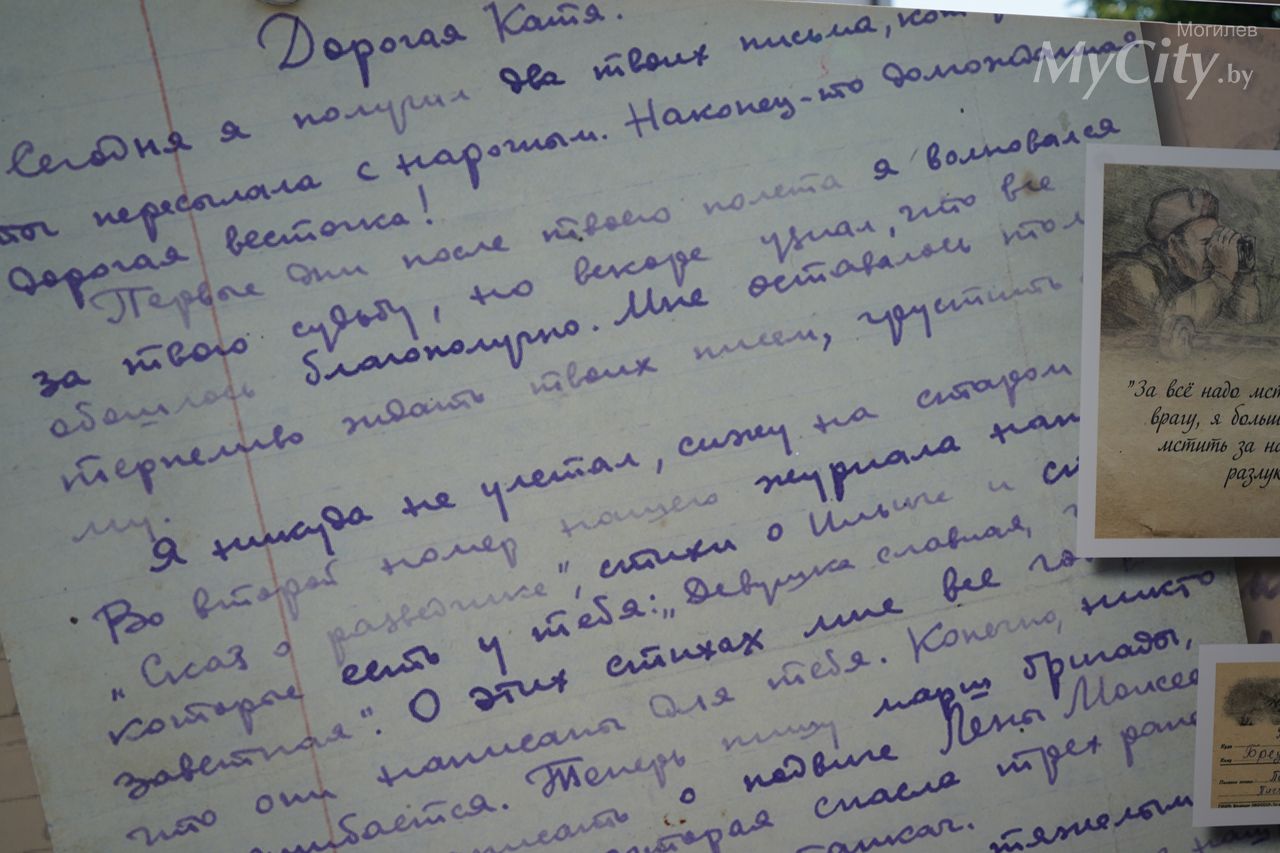 Дорогая Катя.
Сегодня я получил два твоих письма,
ты пересылала с нарочным. Наконец-то долгожданная
дорогая весточка!
Первые дни после твоего полета я волновался
за твою судьбу, но вскоре узнал, что все
обошлось благополучно. Мне оставалось
терпеливо ждать твоих писем, грустить
му.
Я никуда не улетал, сижу на старом
Во второй номер нашего журнала
„Сказ о разведчике", стихи о Ильиче и
которые есть у тебя: „Девушка славная,
заветная". О этих стихах мне все
что они написаны для тебя. Конечно, никто
Теперь пишу марш бригады,
о подвиге Лены
спасла трех
тяжелым
Могилев
MyCity.by
"За всё надо
врагу, я
мстить за